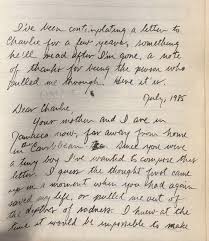 I've been contemplating a letter to
Charlie for a few years, something
he'll read after I'm gone, a note
of thanks for being the person who
pulled me through. Here it is.
July, 1985
Dear Charlie
Your mother and I are in
Jamaica now, far away from home
in the Caribbean. Since you were
a tiny boy I've wanted to compose this
letter. I guess the thought first came
up in a moment when you had again
saved my life, or pulled me out of
the depths of sadness. I knew at the
time it would be impossible to make